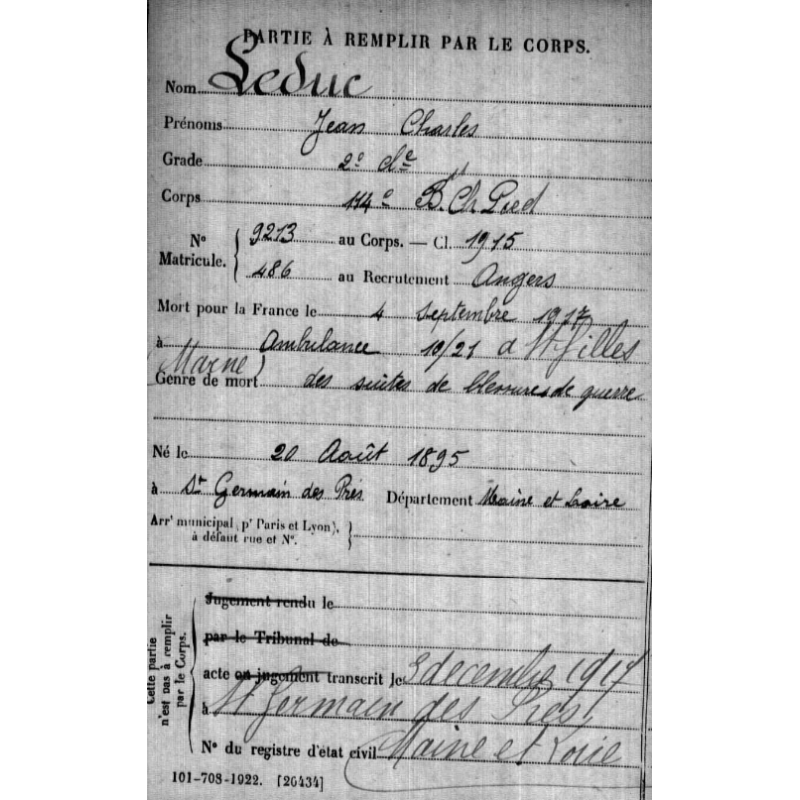 PARTIE À REMPLIR PAR LE CORPS.
Nom Leduc
Prénoms Jean Charles
Grade 2e cl e
Corps 114e B. Ch. Pied
No Matricule. { 9213 au Corps. — Cl. 1915
486 au Recrutement Angers
Mort pour la France le 4 septembre 1917
à Ambulance 19/21 à St Gilles
(Marne)
Genre de mort des suites de blessures de guerre
Né le 20 Août 1895
à St Germain des Prés Département Maine et Loire
Arrt municipal (pr Paris et Lyon),
à défaut rue et No. }
Cette partie n'est pas à remplir par le Corps. {
Jugement rendu le
par le Tribunal de
acte ou jugement transcrit le 3 decembre 1917
à St Germain des Prés,
No du registre d'état civil Maine et Loire
101-708-1922. [26434]